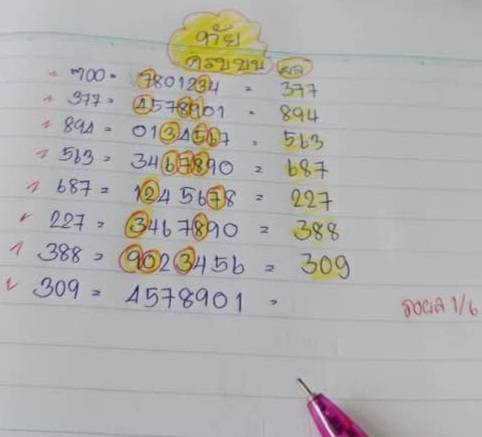 หวย
ครบบน ผล
700 = 7801234 = 377
377 = 4578901 = 894
894 = 0134567 = 563
563 = 3467890 = 687
687 = 1245678 = 227
227 = 3467890 = 388
388 = 9023456 = 309
309 = 4578901 =
รอผล 1/6